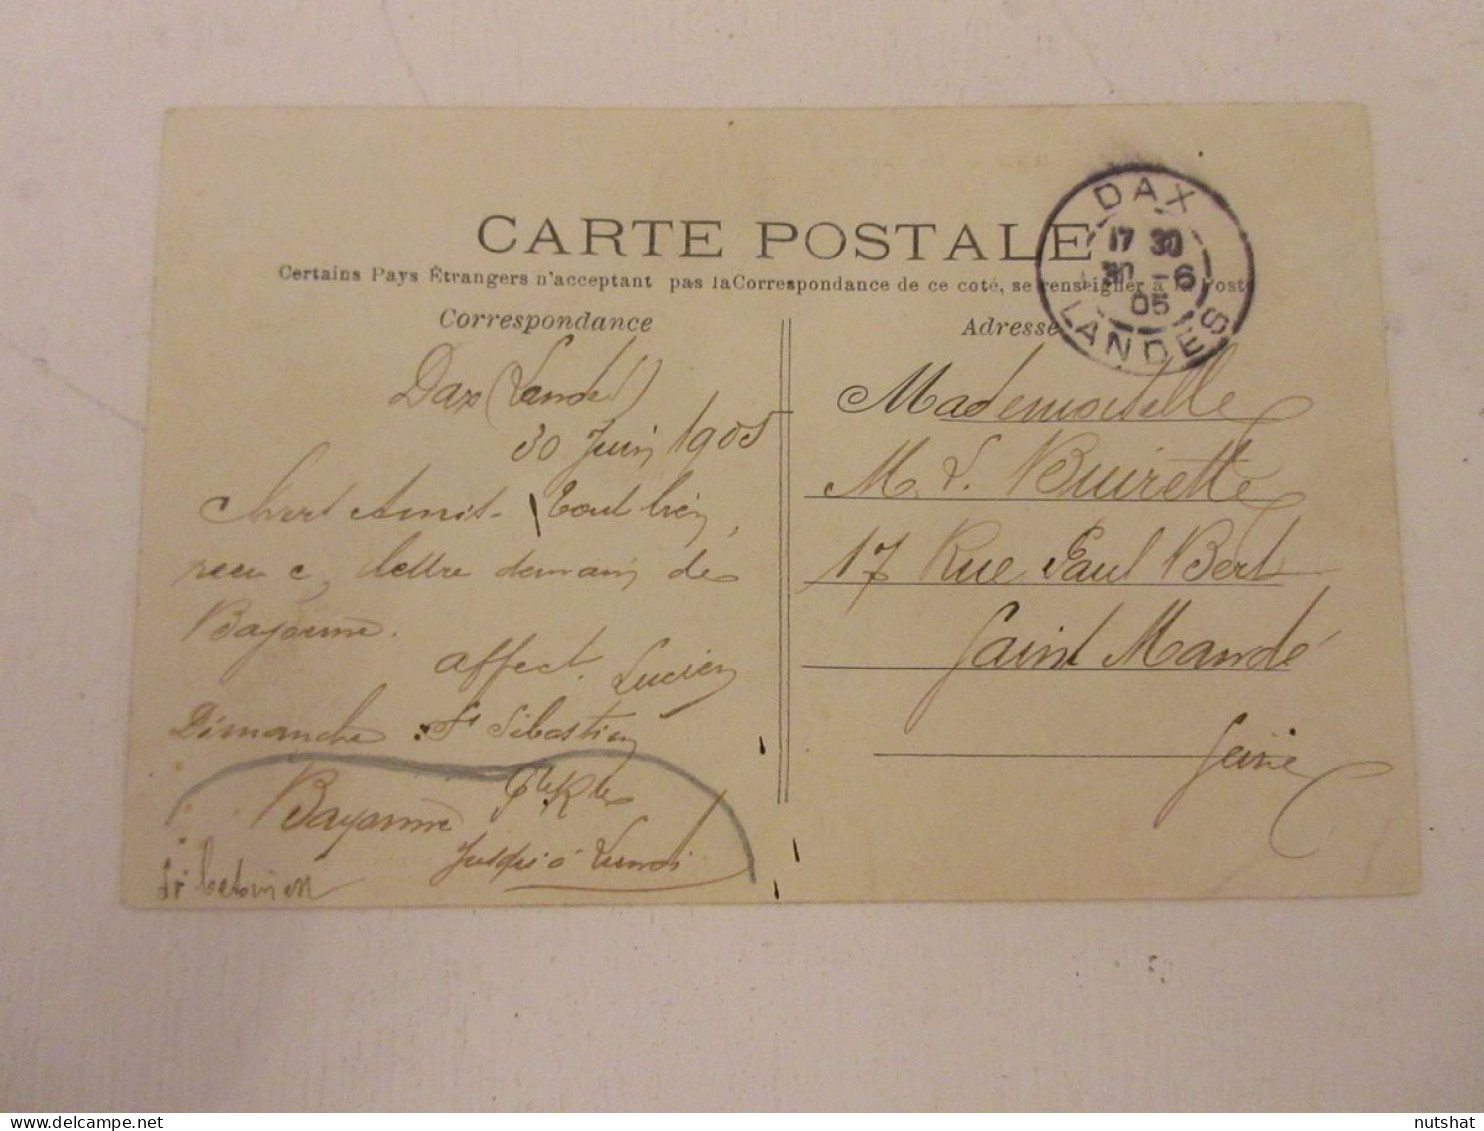 CARTE POSTALE
Certains Pays Étrangers n'acceptant pas la Correspondance de ce coté, se renseigner à la Poste
Correspondance
Adresse
DAX
17 30
30 -6
05
LANDES
Dax (Landes)
30 Juin 1905
Chers Amis - Tout bien
recu lettre demain de
Bayonne.
affect. Lucien
Dimanche : St Sébastien
Bayonne Pte Rte
jusqu'à Lundi
Mademoiselle
M. L. Buirette
17 Rue Paul Bert
Saint Mandé
Seine
nutshat